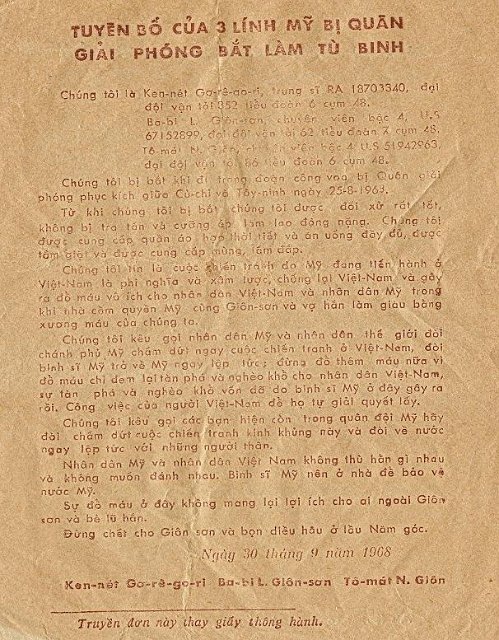 TUYÊN BỐ CỦA 3 LÍNH MỸ BỊ QUÂN
GIẢI PHÓNG BẮT LÀM TÙ BINH
Chúng tôi là Ken-nét Gơ-rê-go-ri, trung sĩ RA 18703340, đại
đội vận tải 352 tiểu đoàn 6 cụm 48.
Ba-bi L. Giôn-sơn, chuyên viên bậc 4, U.S
67152899, đại đội vận tải 62 tiểu đoàn 7 cụm 48.
Tô-mát N. Giôn, chuyên viên bậc 4 U.S 51942963,
đại đội vận tải tiểu đoàn 6 cụm 48.
Chúng tôi bị bắt khi đi trong đoàn công voa bị Quân giải
phóng phục kích giữa Củ-chi và Tây-ninh ngày 25-8-1968.
Từ khi chúng tôi bị bắt chúng tôi được đối xử rất tốt,
không bị tra tấn và cưỡng ép làm lao động nặng. Chúng tôi
được cung cấp quần áo hợp thời tiết và ăn uống đầy đủ, được
tắm giặt và được cung cấp mùng, tấm đắp.
Chúng tôi tin là cuộc chiến tranh do Mỹ đang tiến hành ở
Việt-Nam là phi nghĩa và xâm lược, chống lại Việt-Nam và gây
ra đổ máu vô ích cho nhân dân Việt-Nam và nhân dân Mỹ trong
khi nhà cầm quyền Mỹ cùng Giôn-sơn và vợ hắn làm giàu bằng
xương máu của chúng ta.
Chúng tôi kêu gọi nhân dân Mỹ và nhân dân thế giới đòi
chánh phủ Mỹ chấm dứt ngay cuộc chiến tranh ở Việt-Nam, đòi
binh sĩ Mỹ trở về Mỹ ngay lập tức; đừng đổ thêm máu nữa vì
đổ máu chỉ đem lại tàn phá và nghèo khổ cho nhân dân Việt-Nam,
sự tàn phá và nghèo khổ vốn đã do binh sĩ Mỹ ở đây gây ra
rồi. Công việc của người Việt-Nam để họ tự giải quyết lấy.
Chúng tôi kêu gọi các bạn hiện còn trong quân đội Mỹ hãy
đòi chấm dứt cuộc chiến tranh kinh khủng này và đòi về nước
ngay lập tức với những người thân.
Nhân dân Mỹ và nhân dân Việt Nam không thù hằn gì nhau
và không muốn đánh nhau. Binh sĩ Mỹ nên ở nhà để bảo vệ
nước Mỹ.
Sự đổ máu ở đây không mang lại lợi ích cho ai ngoài Giôn
sơn và bè lũ hắn.
Đừng chết cho Giôn sơn và bọn diều hâu ở lầu Năm góc.
Ngày 30 tháng 9 năm 1968
Ken-nét Gơ-rê-go-ri Ba-bi L. Giôn-sơn Tô-mát N. Giôn
Truyền đơn này thay giấy thông hành.